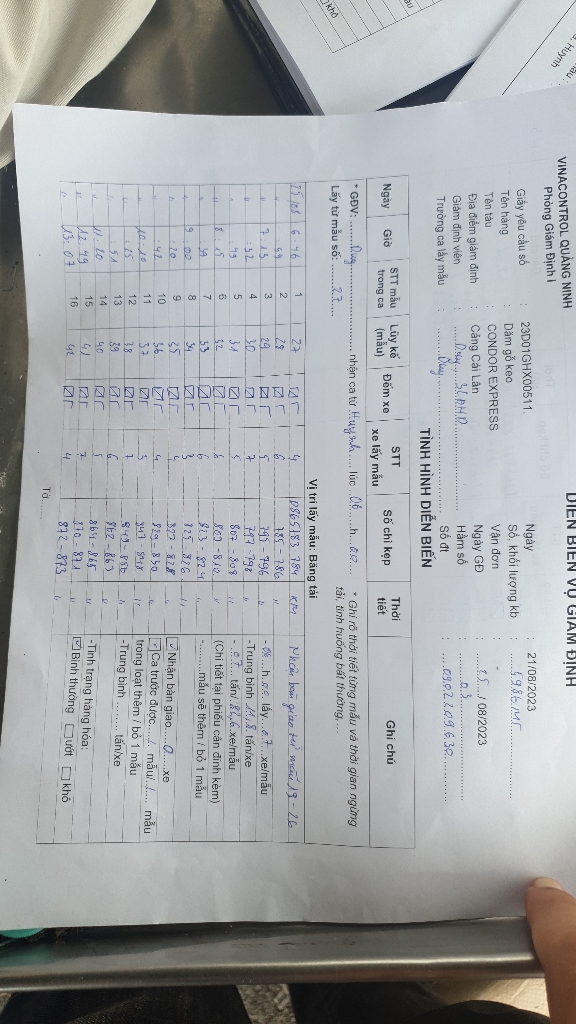 VINACONTROL QUẢNG NINH
Phòng Giám Định I
DIỄN BIẾN VỤ GIÁM ĐỊNH
Giấy yêu cầu số : 23D01GHX00511. Ngày : 21/08/2023
Tên hàng : Dăm gỗ keo Số, khối lượng kb : 5986 MT
Tên tàu : CONDOR EXPRESS Vận đơn : -
Địa điểm giám định : Cảng Cái Lân Ngày GĐ : 25/ 08/2023
Giám định viên : Duy Hầm số : 03
Trưởng ca lấy mẫu : Duy Số đt : 0902209630
TÌNH HÌNH DIỄN BIẾN
* GĐV: Duy nhận ca từ Huynh lúc 06 h 00 * Ghi rõ thời tiết từng mẫu và thời gian ngừng
Lấy từ mẫu số: 27 tải, tình huống bất thường,...
Ngày Giờ STT mẫu trong ca Lũy kế (mẫu) Đếm xe STT xe lấy mẫu Số chì kẹp Thời tiết Ghi chú
Vị trí lấy mẫu: Băng tải
25/08 6:46 1 27 4 0865783-784 KM Nhận bàn giao từ mẫu 19-26
" 59 2 28 6 785-786 "
" 7:13 3 29 5 795-796 " - 06 h 00 lấy 07 xe/mẫu
" 32 4 30 7 797-798 " -Trung bình 11,8 tấn/xe
" 49 5 31 5 807-808 " - 07 tấn/ 82,6 xe/mẫu
" 8:15 6 32 6 809-810 " (Chi tiết tại phiếu cân đính kèm)
" 39 7 33 6 823-824 " - mẫu sẽ thêm / bỏ 1 mẫu
" 9:00 8 34 3 825-826 "
" 20 9 35 4 827-828 " Nhận bàn giao 0 xe
" 42 10 36 4 829-830 " Ca trước được / mẫu/ / mẫu
" 10:10 11 37 5 847-848 " trong loạt thêm / bỏ 1 mẫu
" 25 12 38 7 849-850 " -Trung bình tấn/xe
" 51 13 39 6 862-863 "
" 11:20 14 40 5 864-865 " -Tình trạng hàng hóa:
" 12:49 15 41 7 870-871 " Bình thường ướt khô
" 13:07 16 42 4 872-873 "
Tờ